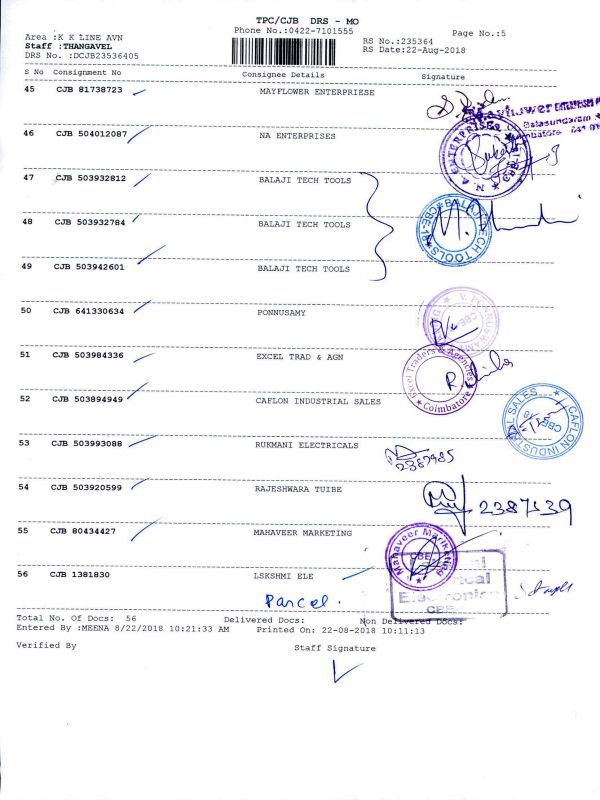 TPC/CJB DRS - MO
Phone No.:0422-7101555
Page No.:5
Area :K K LINE AVN
Staff :THANGAVEL
DRS No. :DCJB23536405
RS No.:235364
RS Date:22-Aug-2018
S No Consignment No Consignee Details Signature
45 CJB 81738723 MAYFLOWER ENTERPRIESE
46 CJB 504012087 NA ENTERPRISES
47 CJB 503932812 BALAJI TECH TOOLS
48 CJB 503932784 BALAJI TECH TOOLS
BALAJI TECH TOOLS
CBE-18
49 CJB 503942601 BALAJI TECH TOOLS
50 CJB 641330634 PONNUSAMY
51 CJB 503984336 EXCEL TRAD & AGN
Excel Traders & Agencies
Coimbatore
52 CJB 503894949 CAFLON INDUSTRIAL SALES
CAFLON INDUSTRIAL SALES
53 CJB 503993088 RUKMANI ELECTRICALS
2387985
54 CJB 503920599 RAJESHWARA TUIBE
2387539
55 CJB 80434427 MAHAVEER MARKETING
Mahaveer Marketing
CBE
56 CJB 1381830 LSKSHMI ELE
Parcel.
Total No. Of Docs: 56 Delivered Docs: Non Delivered Docs:
Entered By :MEENA 8/22/2018 10:21:33 AM Printed On: 22-08-2018 10:11:13
Verified By Staff Signature